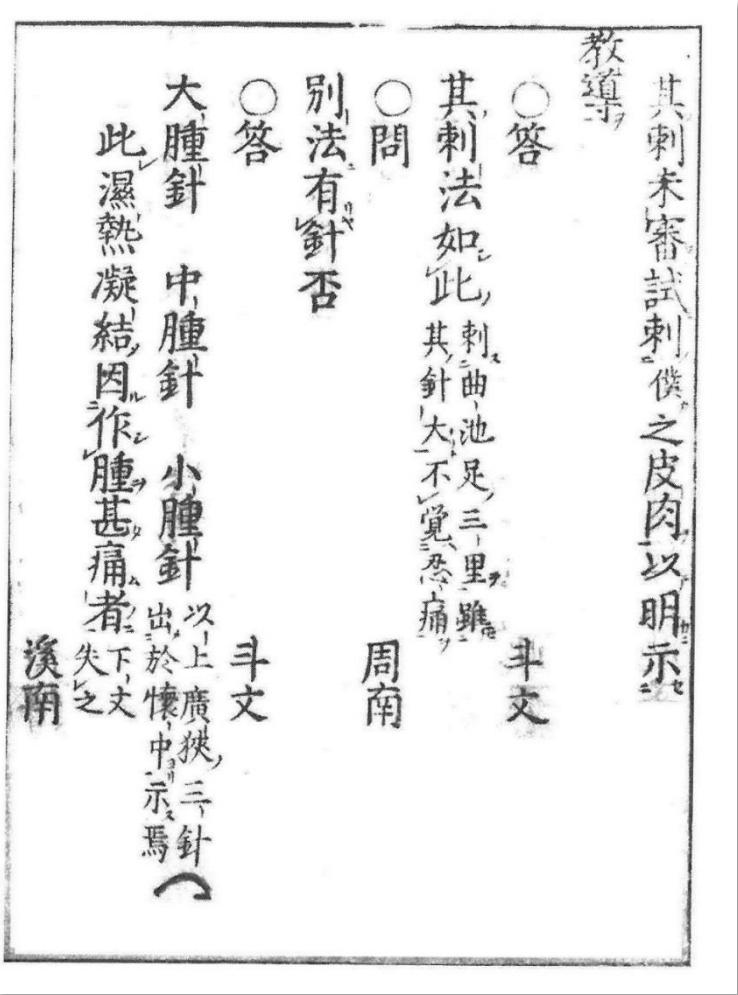 其刺未審試刺僕之皮肉以明示
教導
○答 斗文
其刺法如此 刺曲池足三里雖
其針大不覺忍痛
○問 周南
別法有針否
○答 斗文
大腫針 中腫針 小腫針 以上廣狹三針
出於懷中示焉
此濕熱凝結因作腫甚痛者 下丈
失之
溪南